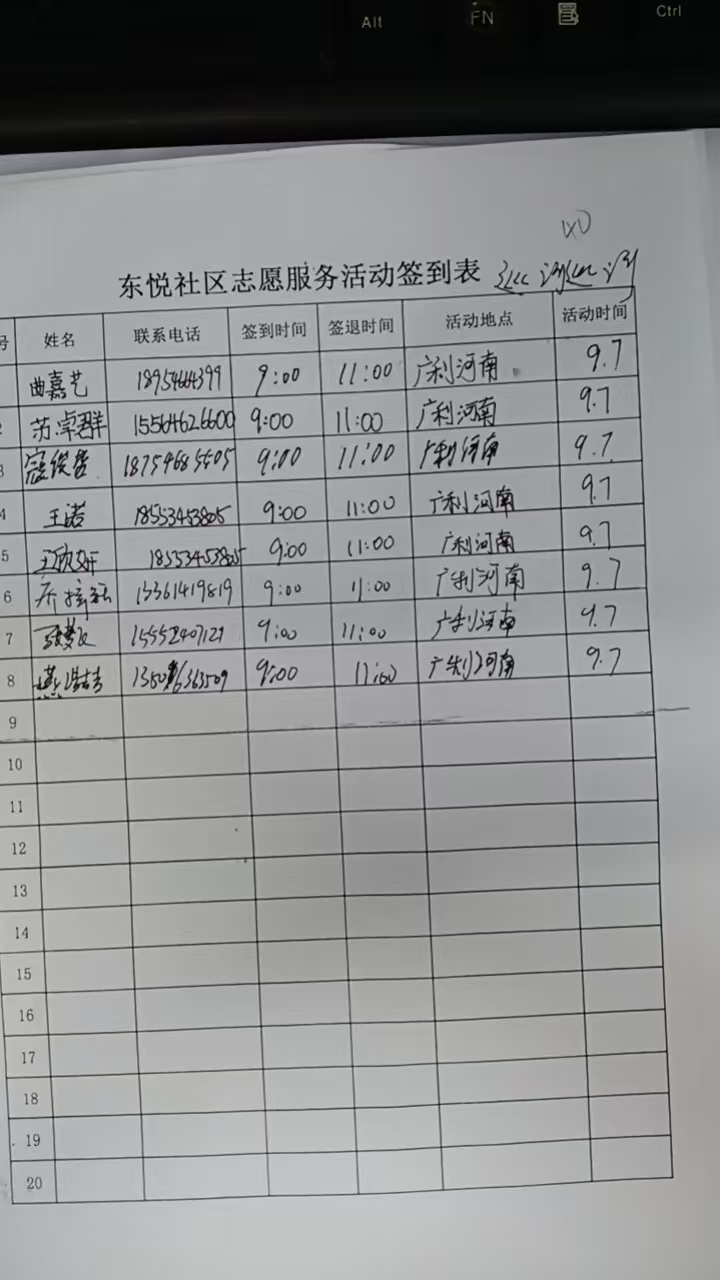 Alt FN Ctrl
东悦社区志愿服务活动签到表
号 姓名 联系电话 签到时间 签退时间 活动地点 活动时间
曲嘉艺 18954664399 9:00 11:00 广利河南 9.7
2 苏卓群 15564626600 9:00 11:00 广利河南 9.7
3 寇俊哲 18754685505 9:00 11:00 广利河南 9.7
4 王诺 18553453805 9:00 11:00 广利河南 9.7
5 王欣妍 18553453805 9:00 11:00 广利河南 9.7
6 乔 13361419819 9:00 11:00 广利河南 9.7
7 15552407121 9:00 11:00 广利河南 9.7
8 9:00 11:00 广利河南 9.7
9
10
11
12
13
14
15
16
17
18
19
20